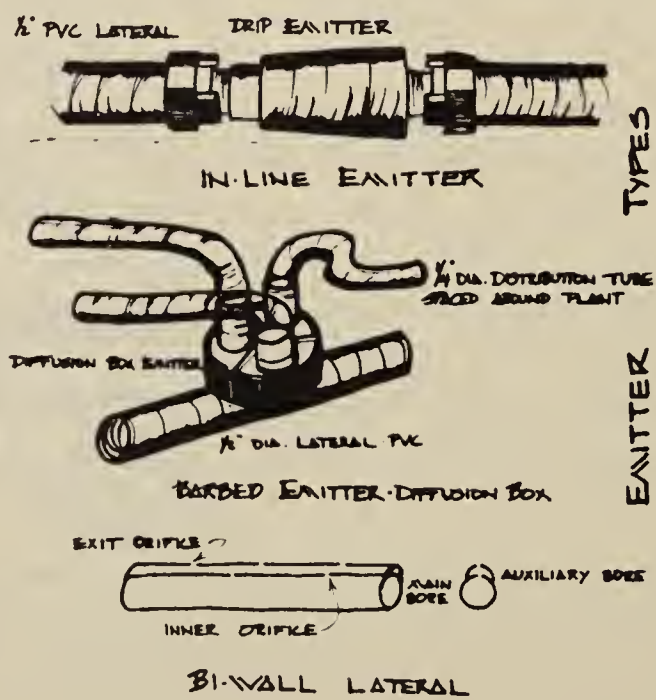 ½" PVC LATERAL
DRIP EMITTER
IN-LINE EMITTER
¼" DIA. DISTRIBUTION TUBE
SPACED AROUND PLANT
DIFFUSION BOX EMITTER
½" DIA. LATERAL PVC
BARBED EMITTER-DIFFUSION BOX
EXIT ORIFICE
MAIN
BORE
AUXILIARY BORE
INNER ORIFICE
BI-WALL LATERAL
EMITTER TYPES